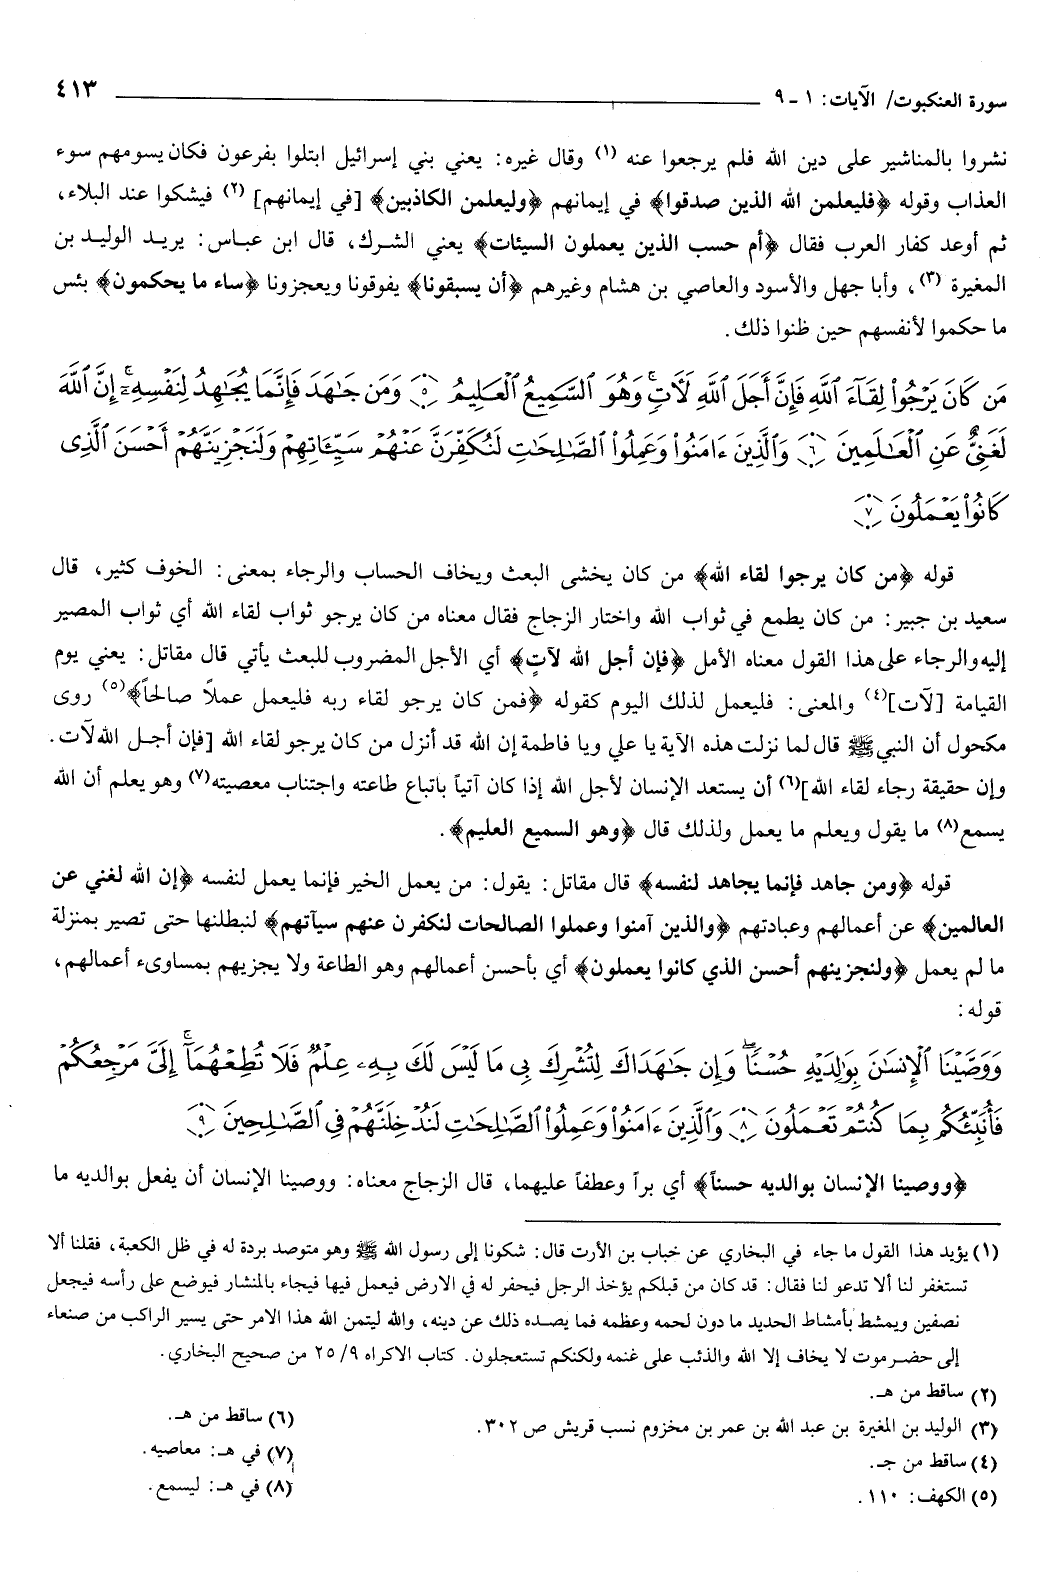 سورة العنكبوت/ الآيات: ١ - ٩ ٤١٣
نشروا بالمناشير على دين الله فلم يرجعوا عنه (١) وقال غيره: يعني بني إسرائيل ابتلوا بفرعون فكان يسومهم سوء
العذاب وقوله ﴿فليعلمن الله الذين صدقوا﴾ في إيمانهم ﴿وليعلمن الكاذبين﴾ [في إيمانهم] (٢) فيشكوا عند البلاء،
ثم أوعد كفار العرب فقال ﴿أم حسب الذين يعملون السيئات﴾ يعني الشرك، قال ابن عباس: يريد الوليد بن
المغيرة (٣)، وأبا جهل والأسود والعاصي بن هشام وغيرهم ﴿أن يسبقونا﴾ يفوقونا ويعجزونا ﴿ساء ما يحكمون﴾ بئس
ما حكموا لأنفسهم حين ظنوا ذلك.
مَن كَانَ يَرْجُوا۟ لِقَآءَ ٱللَّهِ فَإِنَّ أَجَلَ ٱللَّهِ لَآتٍ ۚ وَهُوَ ٱلسَّمِيعُ ٱلْعَلِيمُ ٥ وَمَن جَٰهَدَ فَإِنَّمَا يُجَٰهِدُ لِنَفْسِهِۦٓ ۚ إِنَّ ٱللَّهَ
لَغَنِىٌّ عَنِ ٱلْعَٰلَمِينَ ٦ وَٱلَّذِينَ ءَامَنُوا۟ وَعَمِلُوا۟ ٱلصَّٰلِحَٰتِ لَنُكَفِّرَنَّ عَنْهُمْ سَيِّـَٔاتِهِمْ وَلَنَجْزِيَنَّهُمْ أَحْسَنَ ٱلَّذِى
كَانُوا۟ يَعْمَلُونَ ٧
قوله ﴿من كان يرجوا لقاء الله﴾ من كان يخشى البعث ويخاف الحساب والرجاء بمعنى: الخوف كثير، قال
سعيد بن جبير: من كان يطمع في ثواب الله واختار الزجاج فقال معناه من كان يرجو ثواب لقاء الله أي ثواب المصير
إليه والرجاء على هذا القول معناه الأمل ﴿فإن أجل الله لآتٍ﴾ أي الأجل المضروب للبعث يأتي قال مقاتل: يعني يوم
القيامة [لآت](٤) والمعنى: فليعمل لذلك اليوم كقوله ﴿فمن كان يرجو لقاء ربه فليعمل عملاً صالحاً﴾(٥) روى
مكحول أن النبي ﷺ قال لما نزلت هذه الآية يا علي ويا فاطمة إن الله قد أنزل من كان يرجو لقاء الله [فإن أجل الله لآت.
وإن حقيقة رجاء لقاء الله](٦) أن يستعد الإنسان لأجل الله إذا كان آتياً باتباع طاعته واجتناب معصيته(٧) وهو يعلم أن الله
يسمع(٨) ما يقول ويعلم ما يعمل ولذلك قال ﴿وهو السميع العليم﴾.
قوله ﴿ومن جاهد فإنما يجاهد لنفسه﴾ قال مقاتل: يقول: من يعمل الخير فإنما يعمل لنفسه ﴿إن الله لغني عن
العالمين﴾ عن أعمالهم وعبادتهم ﴿والذين آمنوا وعملوا الصالحات لنكفرن عنهم سيآتهم﴾ لنبطلنها حتى تصير بمنزلة
ما لم يعمل ﴿ولنجزينهم أحسن الذي كانوا يعملون﴾ أي بأحسن أعمالهم وهو الطاعة ولا يجزيهم بمساوىء أعمالهم،
قوله:
وَوَصَّيْنَا ٱلْإِنسَٰنَ بِوَٰلِدَيْهِ حُسْنًا ۖ وَإِن جَٰهَدَاكَ لِتُشْرِكَ بِى مَا لَيْسَ لَكَ بِهِۦ عِلْمٌ فَلَا تُطِعْهُمَآ ۚ إِلَىَّ مَرْجِعُكُمْ
فَأُنَبِّئُكُم بِمَا كُنتُمْ تَعْمَلُونَ ٨ وَٱلَّذِينَ ءَامَنُوا۟ وَعَمِلُوا۟ ٱلصَّٰلِحَٰتِ لَنُدْخِلَنَّهُمْ فِى ٱلصَّٰلِحِينَ ٩
﴿ووصينا الإنسان بوالديه حسناً﴾ أي براً وعطفاً عليهما، قال الزجاج معناه: ووصينا الإنسان أن يفعل بوالديه ما
(١) يؤيد هذا القول ما جاء في البخاري عن خباب بن الأرت قال: شكونا إلى رسول الله ﷺ وهو متوصد بردة له في ظل الكعبة، فقلنا ألا
تستغفر لنا ألا تدعو لنا فقال: قد كان من قبلكم يؤخذ الرجل فيحفر له في الارض فيعمل فيها فيجاء بالمنشار فيوضع على رأسه فيجعل
نصفين ويمشط بأمشاط الحديد ما دون لحمه وعظمه فما يصده ذلك عن دينه، والله ليتمن الله هذا الامر حتى يسير الراكب من صنعاء
إلى حضرموت لا يخاف إلا الله والذئب على غنمه ولكنكم تستعجلون. كتاب الاكراه ٩/ ٢٥ من صحيح البخاري.
(٢) ساقط من هـ.
(٣) الوليد بن المغيرة بن عبد الله بن عمر بن مخزوم نسب قريش ص ٣٠٢.
(٤) ساقط من جـ.
(٥) الكهف: ١١٠.
(٦) ساقط من هـ.
(٧) في هـ: معاصيه.
(٨) في هـ: ليسمع.